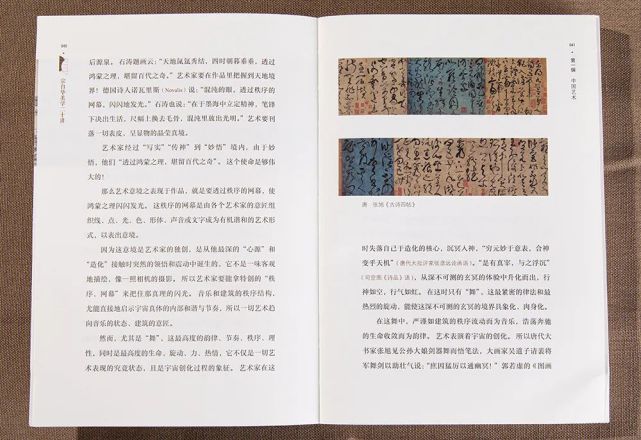 040
宗白华美学二十讲
后源泉。石涛题画云：“天地氤氲秀结，四时朝暮垂垂，透过
鸿蒙之理，堪留百代之奇。”艺术家要在作品里把握到天地境
界！德国诗人诺瓦里斯（Novalis）说：“混沌的眼，透过秩序的
网幕，闪闪地发光。”石涛也说：“在于墨海中立定精神，笔锋
下决出生活，尺幅上换去毛骨，混沌里放出光明。”艺术要刊
落一切表皮，呈显物的晶莹真境。
艺术家经过“写实”“传神”到“妙悟”境内，由于妙
悟，他们“透过鸿蒙之理，堪留百代之奇”。这个使命是够伟
大的！
那么艺术意境之表现于作品，就是要透过秩序的网幕，使
鸿蒙之理闪闪发光。这秩序的网幕是由各个艺术家的意匠组
织线、点、光、色、形体、声音或文字成为有机谐和的艺术形
式，以表出意境。
因为这意境是艺术家的独创，是从他最深的“心源”和
“造化”接触时突然的领悟和震动中诞生的，它不是一味客观
地描绘，像一照相机的摄影。所以艺术家要能拿特创的“秩
序、网幕”来把住那真理的闪光。音乐和建筑的秩序结构，
尤能直接地启示宇宙真体的内部和谐与节奏，所以一切艺术趋
向音乐的状态、建筑的意匠。
然而，尤其是“舞”，这最高度的韵律、节奏、秩序、理
性，同时是最高度的生命、旋动、力、热情，它不仅是一切艺
术表现的究竟状态，且是宇宙创化过程的象征。艺术家在这
041
第一辑
中国艺术
唐 张旭《古诗四帖》
时失落自己于造化的核心，沉冥入神，“穷元妙于意表，合神
变乎天机”（唐代大批评家张彦远论画语）。“是有真宰，与之浮沉”
（司空图《诗品》语），从深不可测的玄冥的体验中升化而出，行
神如空，行气如虹。在这时只有“舞”，这最紧密的律法和最
热烈的旋动，能使这深不可测的玄冥的境界具象化、肉身化。
在这舞中，严谨如建筑的秩序流动而为音乐，浩荡奔驰
的生命收敛而为韵律。艺术表演着宇宙的创化。所以唐代大
书家张旭见公孙大娘剑器舞而悟笔法，大画家吴道子请裴将
军舞剑以助壮气说：“庶因猛厉以通幽冥！”郭若虚的《图画